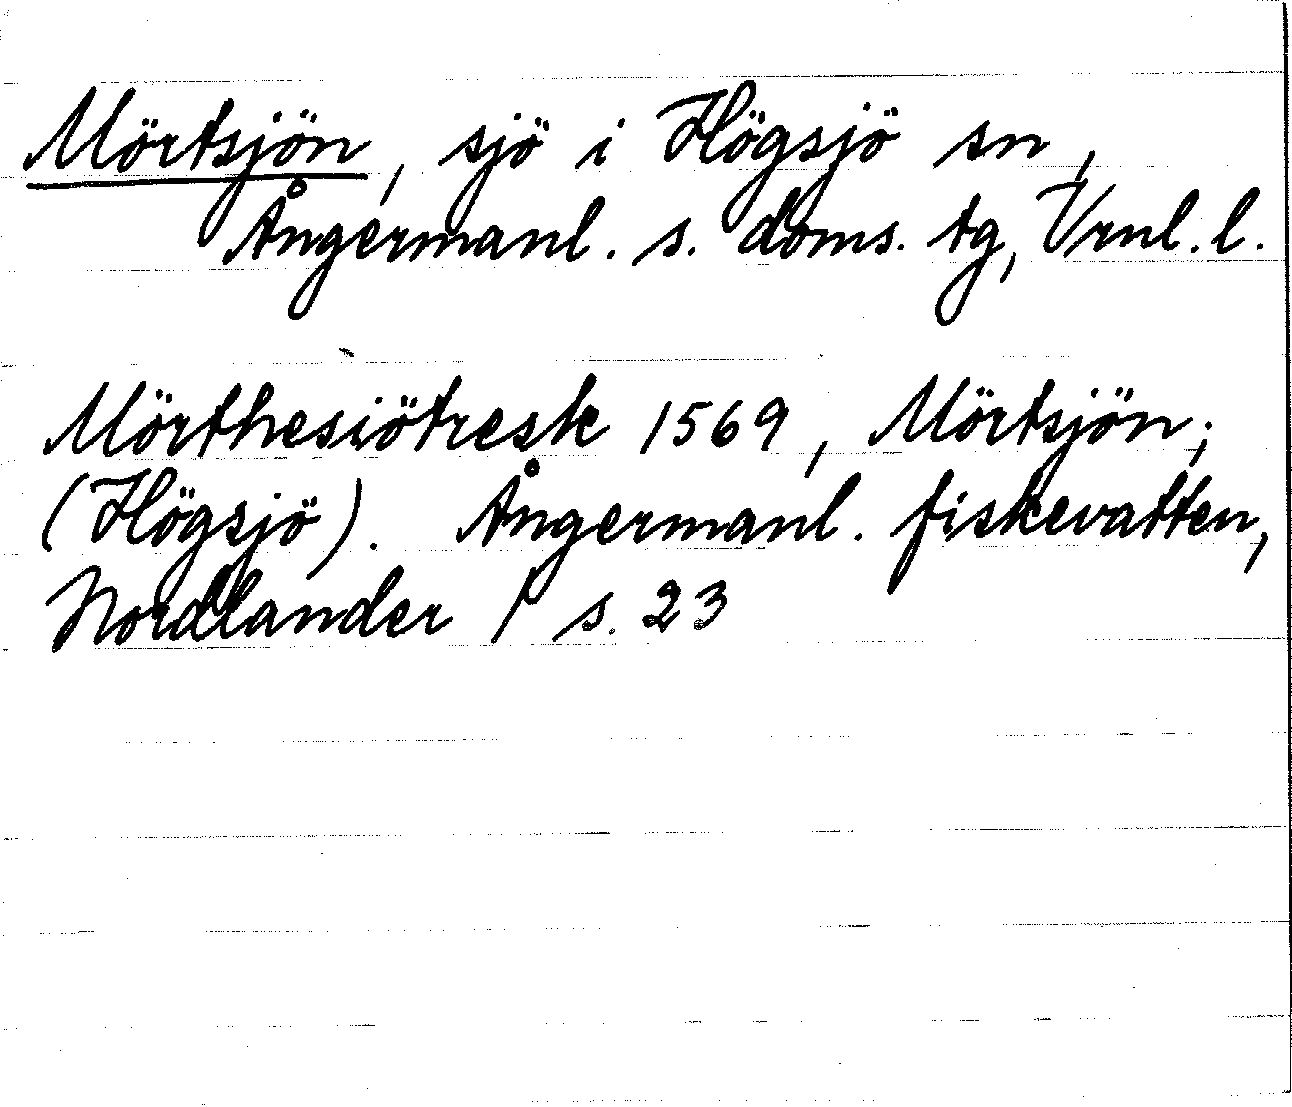 Mörtsjön, sjö i Högsjö sn,
Ångermanl. s. doms. tg, Vrnl. l.
Mörthesiötresk 1569, Mörtsjön;
(Högsjö). Ångermanl. fiskevatten,
Nordlander / s. 23